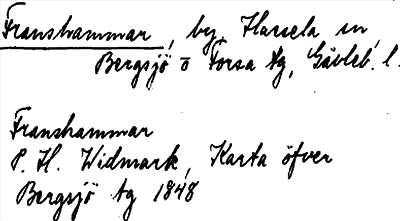 Franshammar, by, Hassela sn,
Bergsjö o Forsa tg, Gävleb. l.
Franshammar
P. H. Widmark, Karta öfver
Bergsjö tg 1848